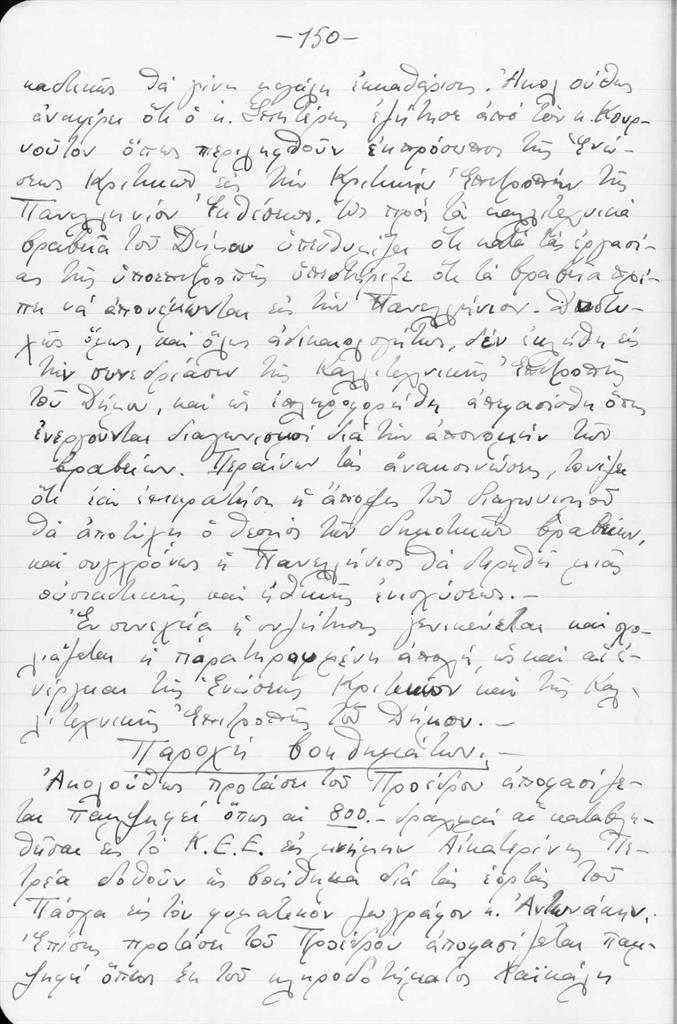 -150-
θά γίνη μεγάλη ἐκκαθάρισις. Ἀκολούθως
ἀναφέρει ὅτι ὁ κ. Σπητέρης ἐζήτησε ἀπό τόν κ. Κουρ-
νοῦτον ὅπως περιληφθοῦν ἐκπρόσωποι τῆς Ἑνώ-
σεως Κριτικῶν εἰς τήν Κριτικήν Ἐπιτροπήν τῆς
Πανελληνίου Ἐκθέσεως. Ὡς πρός τά καλλιτεχνικά
βραβεῖα τοῦ Δήμου ὑπενθυμίζει ὅτι κατά τάς ἐργασί-
ας τῆς ὑποεπιτροπῆς ὑπεστήριξε ὅτι τά βραβεῖα πρέ-
πει νά ἀπονέμωνται εἰς τήν Πανελλήνιον. Δυστυ-
χῶς ὅμως, καί ὅλως ἀδικαιολογήτως, δέν ἐκλήθη εἰς
τήν συνεδρίασιν τῆς Καλλιτεχνικῆς Ἐπιτροπῆς
τοῦ Δήμου, καί ὡς ἐπληροφορήθη ἀπεφασίσθη ὅπως
ἐνεργοῦνται διαγωνισμοί διά τήν ἀπονομήν τῶν
βραβείων. Περαίνων τάς ἀνακοινώσεις, τονίζει
ὅτι ἐάν ἐπικρατήση ἡ ἄποψις τοῦ διαγωνισμοῦ
θά ἀποτύχη ὁ θεσμός τῶν δημοτικῶν βραβείων,
καί συγχρόνως ἡ Πανελλήνιος θά στερηθῆ μιᾶς
οὐσιαστικῆς καί ἠθικῆς ἐνισχύσεως.-
Ἐν συνεχεία ἡ συζήτησις γενικεύεται καί σχο-
λιάζεται ἡ παρατηρουμένη ἀποχή, ὡς καί αἱ ἐ-
νέργειαι τῆς Ἑνώσεως Κριτικῶν καί τῆς Καλ-
λιτεχνικῆς Ἐπιτροπῆς τοῦ Δήμου.-
Παροχή βοηθημάτων.-
Ἀκολούθως προτάσει τοῦ Προέδρου ἀποφασίζε-
ται παμψηφεί ὅπως αἱ 800.- δραχμαί αἱ καταβλη-
θεῖσαι εἰς τό Κ.Ε.Ε. εἰς μνήμην Αἰκατερίνης Πε-
τρέα δοθοῦν ὡς βοήθημα διά τάς ἑορτάς τοῦ
Πάσχα εἰς τόν φυματικόν ζωγράφον κ. Ἀντωνάκην.
Ἐπίσης προτάσει τοῦ Προέδρου ἀποφασίζεται παμ-
ψηφεί ὅπως ἐκ τοῦ κληροδοτήματος Χαϊκάλη